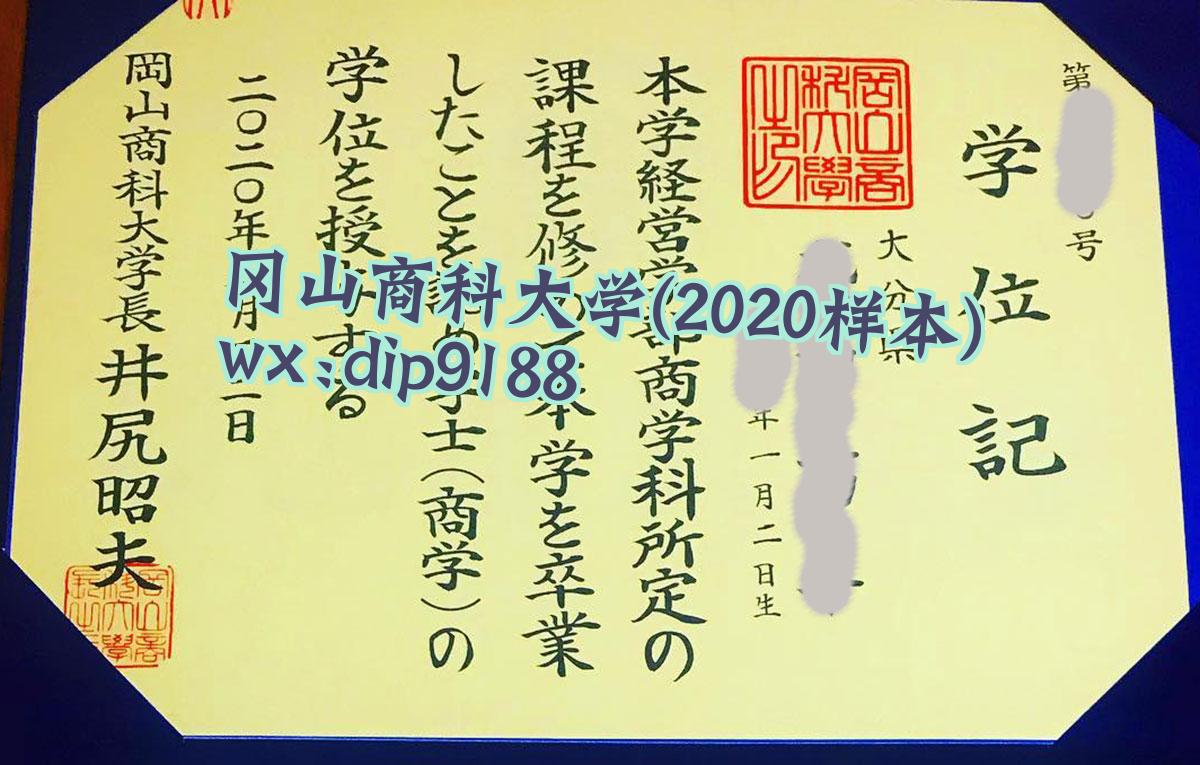 第 号
学位記
大分県
年一月二日生
岡山商科大學之印
本学経営学部商学科所定の
課程を修めて本学を卒業
したことを認め学士(商学)の
学位を授与する
二〇二〇年 月 二日
岡山商科大学長 井尻昭夫
冈山商科大学(2020样本)
wx:dip9188